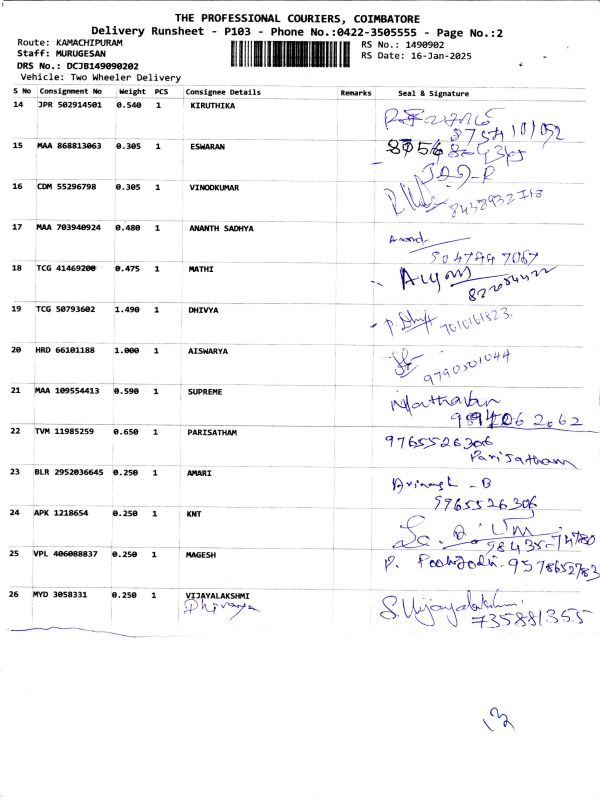 THE PROFESSIONAL COURIERS, COIMBATORE
Delivery Runsheet - P103 - Phone No.:0422-3505555 - Page No.:2
Route: KAMACHIPURAM RS No.: 1490902
Staff: MURUGESAN RS Date: 16-Jan-2025
DRS No.: DCJB149090202
Vehicle: Two Wheeler Delivery
S No Consignment No Weight PCS Consignee Details Remarks Seal & Signature
14 JPR 502914501 0.540 1 KIRUTHIKA
8754101092
15 MAA 868813063 0.305 1 ESWARAN
16 CDM 55296798 0.305 1 VINODKUMAR
17 MAA 703940924 0.480 1 ANANTH SADHYA
Anand
18 TCG 41469200 0.475 1 MATHI
19 TCG 50793602 1.490 1 DHIVYA
7010161823
20 HRD 66101188 1.000 1 AISWARYA
9790501044
21 MAA 109554413 0.590 1 SUPREME
22 TVM 11985259 0.650 1 PARISATHAM 9765526306
Parisatham
23 BLR 2952036645 0.250 1 AMARI
9965526306
24 APK 1218654 0.250 1 KNT
98435-74780
25 VPL 406088837 0.250 1 MAGESH
26 MYD 3058331 0.250 1 VIJAYALAKSHMI S.Vijayalakshmi
735881355